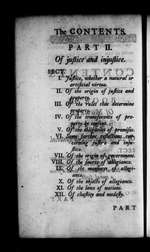 The CONTENTS.
PART II.
Of justice and injustice.
SECT.
I. Justice, whether a natural or
artificial virtue.
II. Of the origin of justice and
property.
III. Of the rules that determine
property.
IV. Of the transference of pro-
perty by consent.
V. Of the obligation of promises.
VI. Some farther reflections con-
cerning justice and inju-
stice.
VII. Of the origin of government.
VIII. Of the source of allegiance.
IX. Of the measures of allegi-
ance.
X. Of the objects of allegiance.
XI. Of the laws of nations.
XII. Of chastity and modesty.
PART